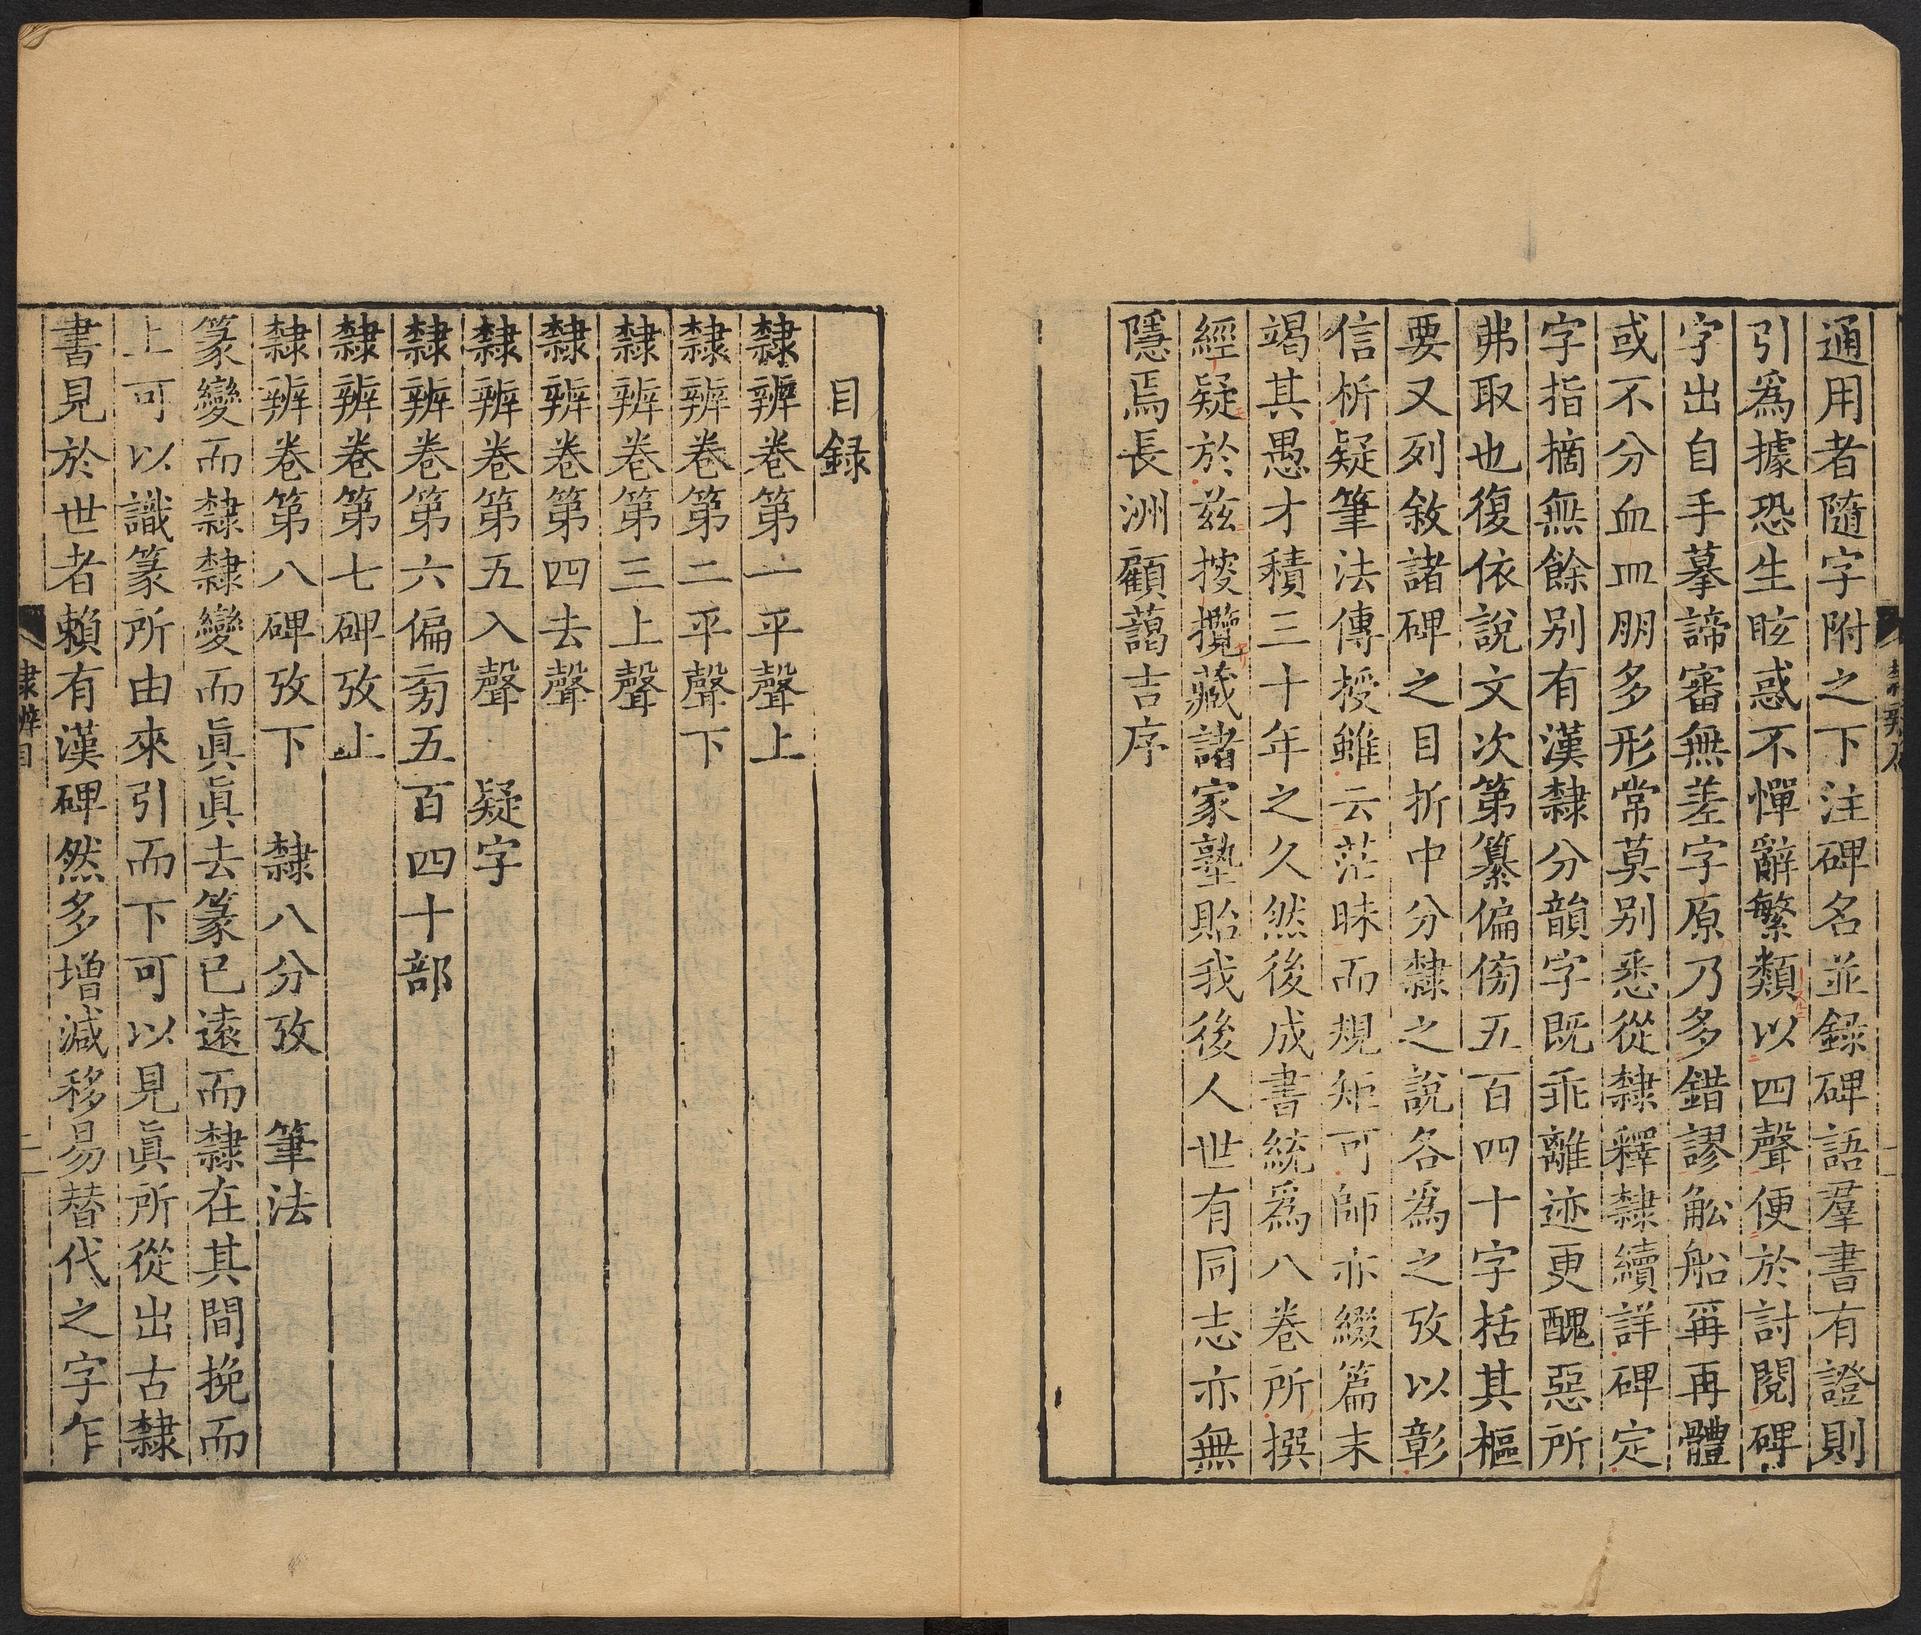 通用者隨字附之下注碑名並錄碑語羣書有證則
引爲據恐生眩惑不憚辭繁類以四聲便於討閱碑
字出自手摹諦審無差字原乃多錯謬舩船再再體
或不分血皿朋多形常莫別悉從隸釋隸續詳碑定
字指摘無餘別有漢隸分韻字既乖離迹更醜惡所
弗取也復依說文次第纂偏傍五百四十字括其樞
要又列敘諸碑之目折中分隸之說各爲之攷以彰
信析疑筆法傳授雖云茫昧而規矩可師亦綴篇末
竭其愚才積三十年之久然後成書統爲八卷所撰
經疑於茲𢮦攬藏諸家塾貽我後人世有同志亦無
隱焉長洲顧藹吉序
目録
隸辨卷第一平聲上
隸辨卷第二平聲下
隸辨卷第三上聲
隸辨卷第四去聲
隸辨卷第五入聲 疑字
隸辨卷第六偏㫄五百四十部
隸辨卷第七碑攷上
隸辨卷第八碑攷下 隸八分攷 筆法
篆變而隸隸變而眞眞去篆已遠而隸在其間挽而
上可以識篆所由來引而下可以見眞所從出古隸
書見於世者賴有漢碑然多增減移易替代之字乍
隸辨目
二